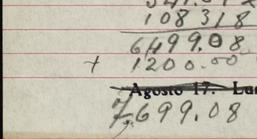 108318
6499.08
+ 1200.00
Agosto 17.
7,699.08